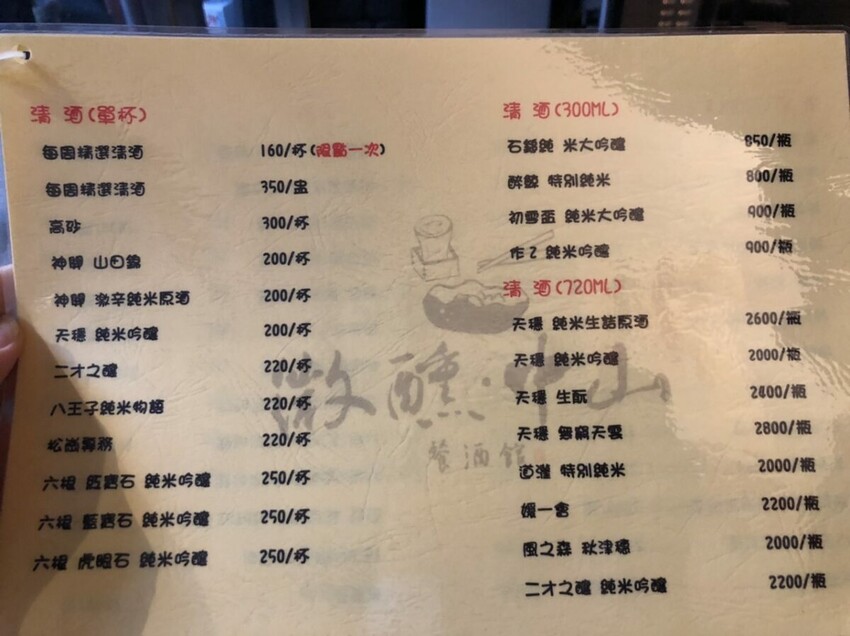 清 酒(單杯)
每週精選清酒 160/杯(限點一次)
每週精選清酒 350/盅
高砂 300/杯
神開 山田錦 200/杯
神開 激辛純米原酒 200/杯
天穩 純米吟釀 200/杯
二才之釀 220/杯
八王子純米物語 220/杯
220/杯
六根 純米吟釀 250/杯
六根 藍寶石 純米吟釀 250/杯
六根 虎眼石 純米吟釀 250/杯
清 酒(300ML)
石鎚純 米大吟釀 850/瓶
醉鯨 特別純米 800/瓶
初雪盃 純米大吟釀 900/瓶
作 Z 純米吟釀 900/瓶
清 酒(720ML)
天穩 純米生詰原酒 2600/瓶
天穩 純米吟釀 2000/瓶
天穩 生酛 2400/瓶
天穩 無窮天雲 2800/瓶
道灌 特別純米 2000/瓶
媛一會 2200/瓶
風之森 秋津穗 2000/瓶
二才之釀 純米吟釀 2200/瓶
微醺·中山
餐酒館